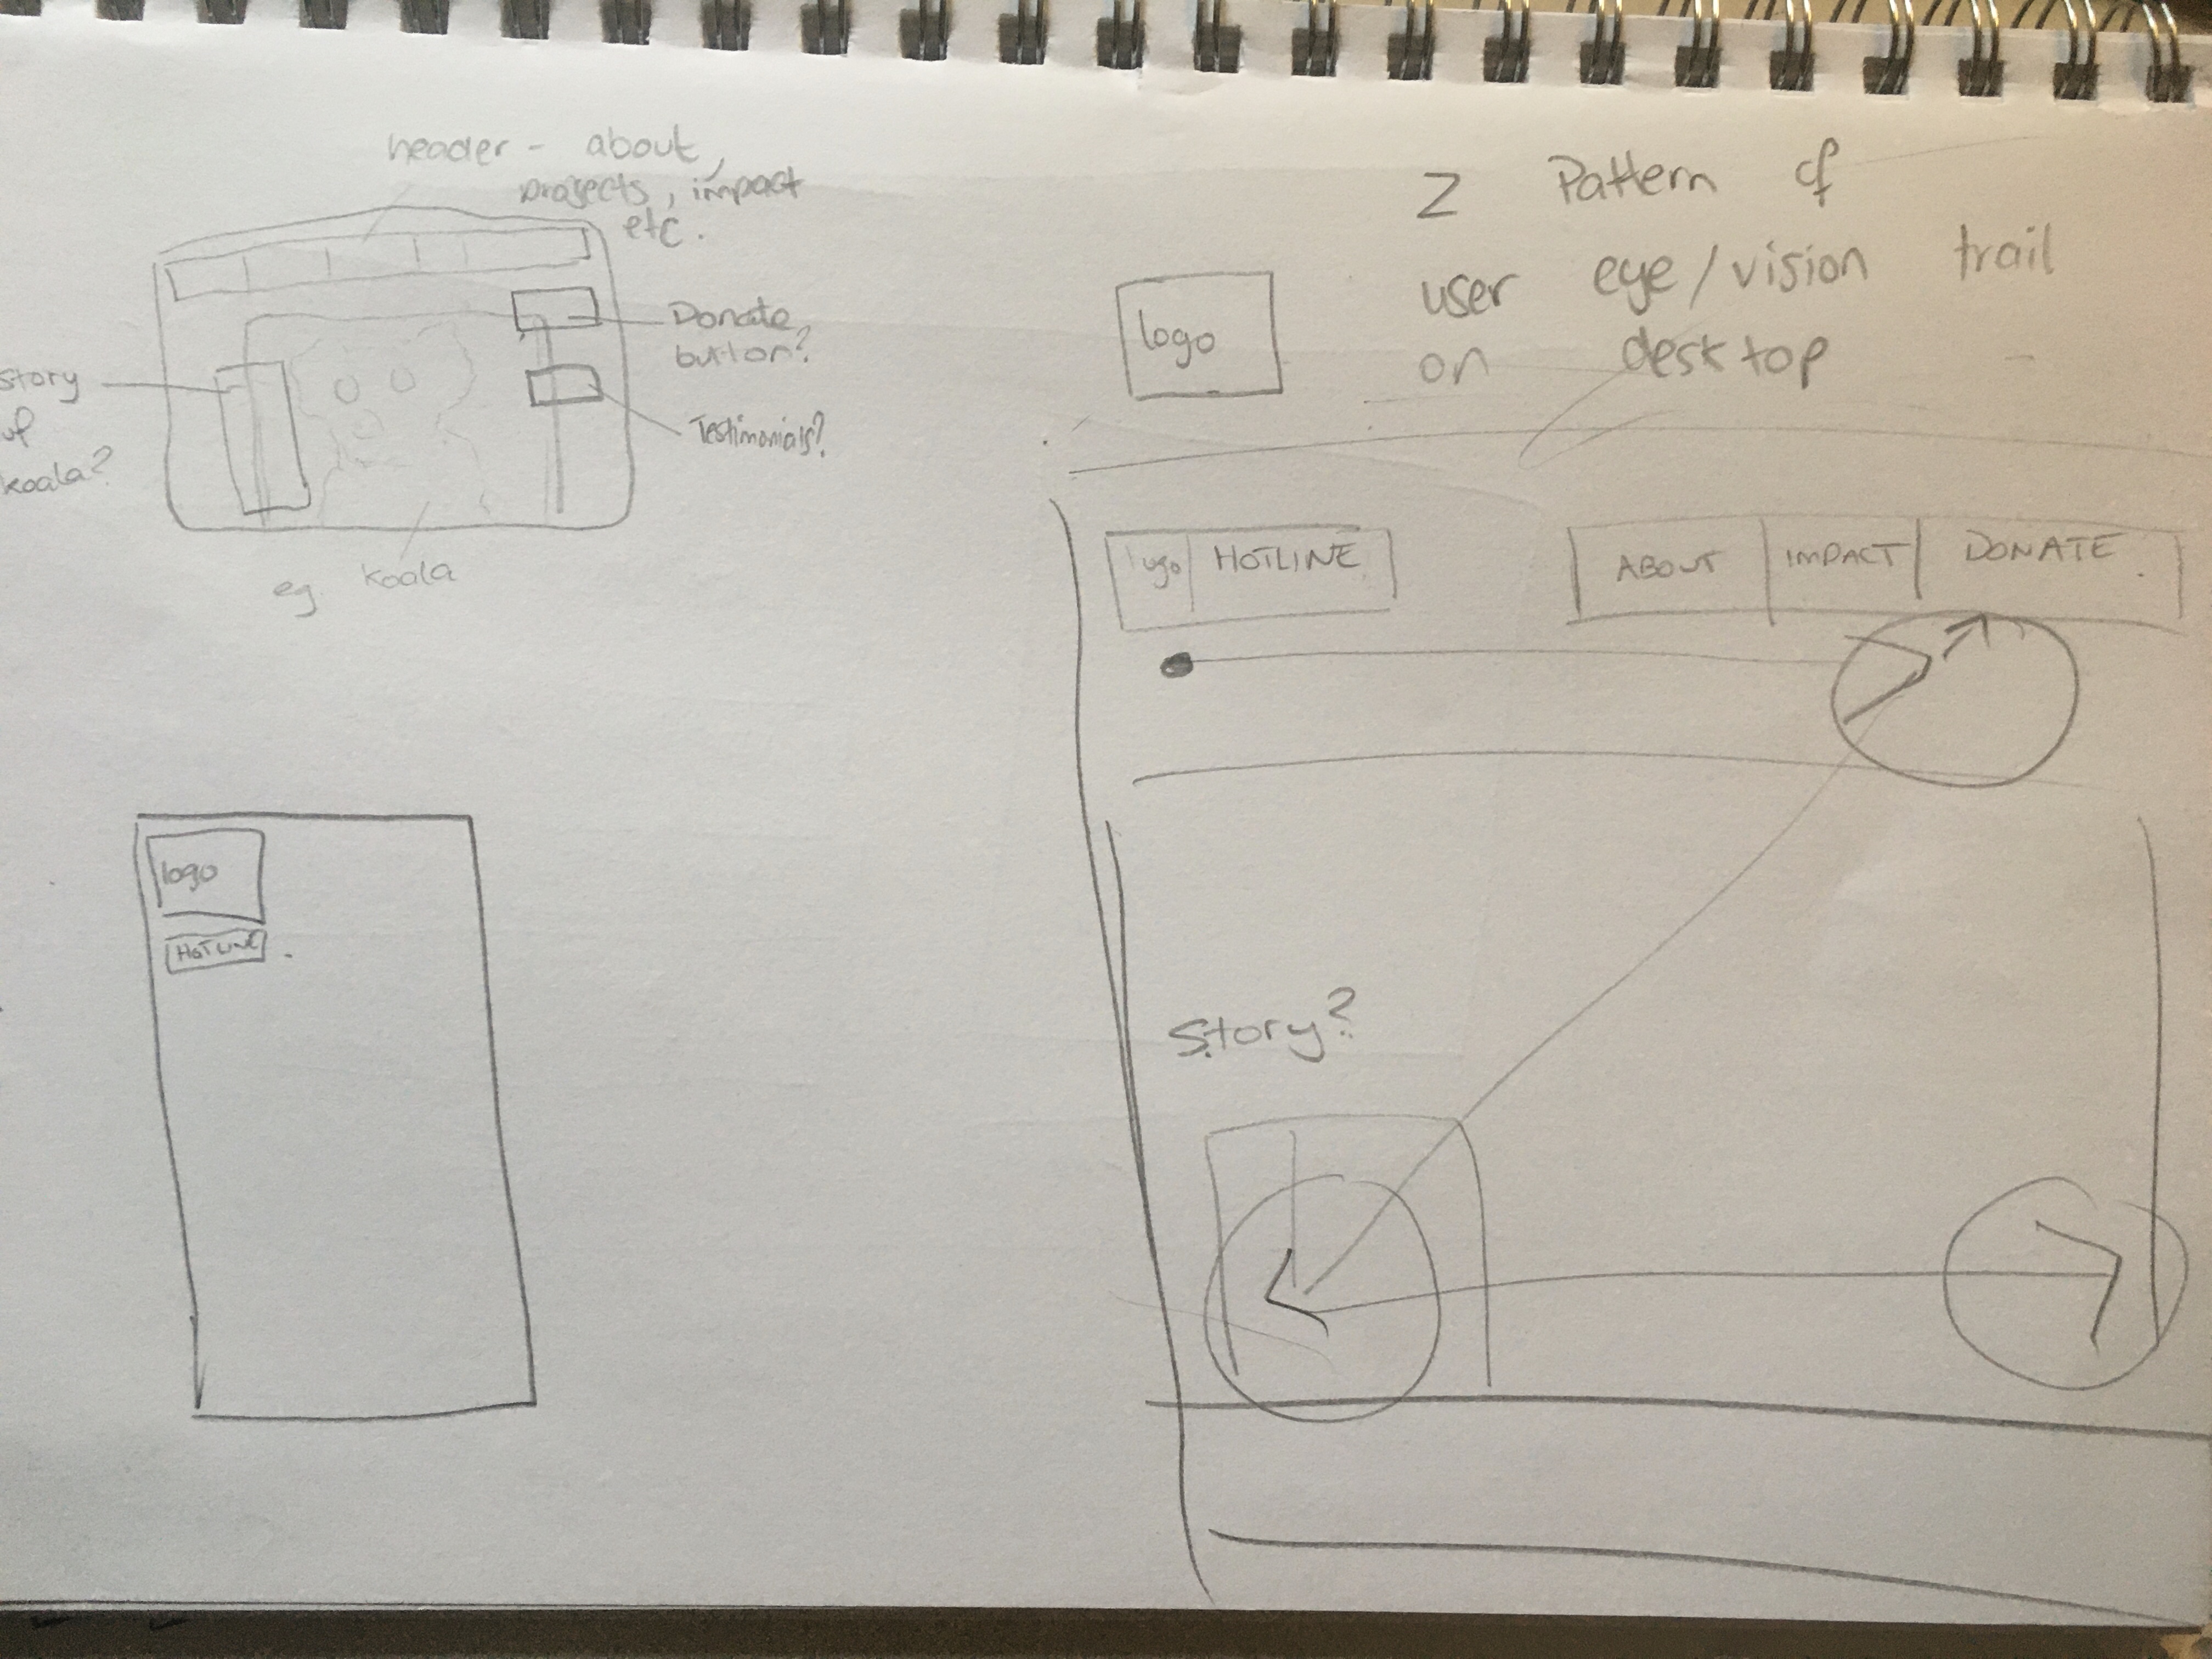 header - about,
projects, impact
etc.
Donate
button?
story
of
koala?
Testimonials?
eg. koala
logo
HOTLINE
Z Pattern of
user eye/vision trail
on desktop
logo
logo HOTLINE ABOUT IMPACT DONATE
Story?